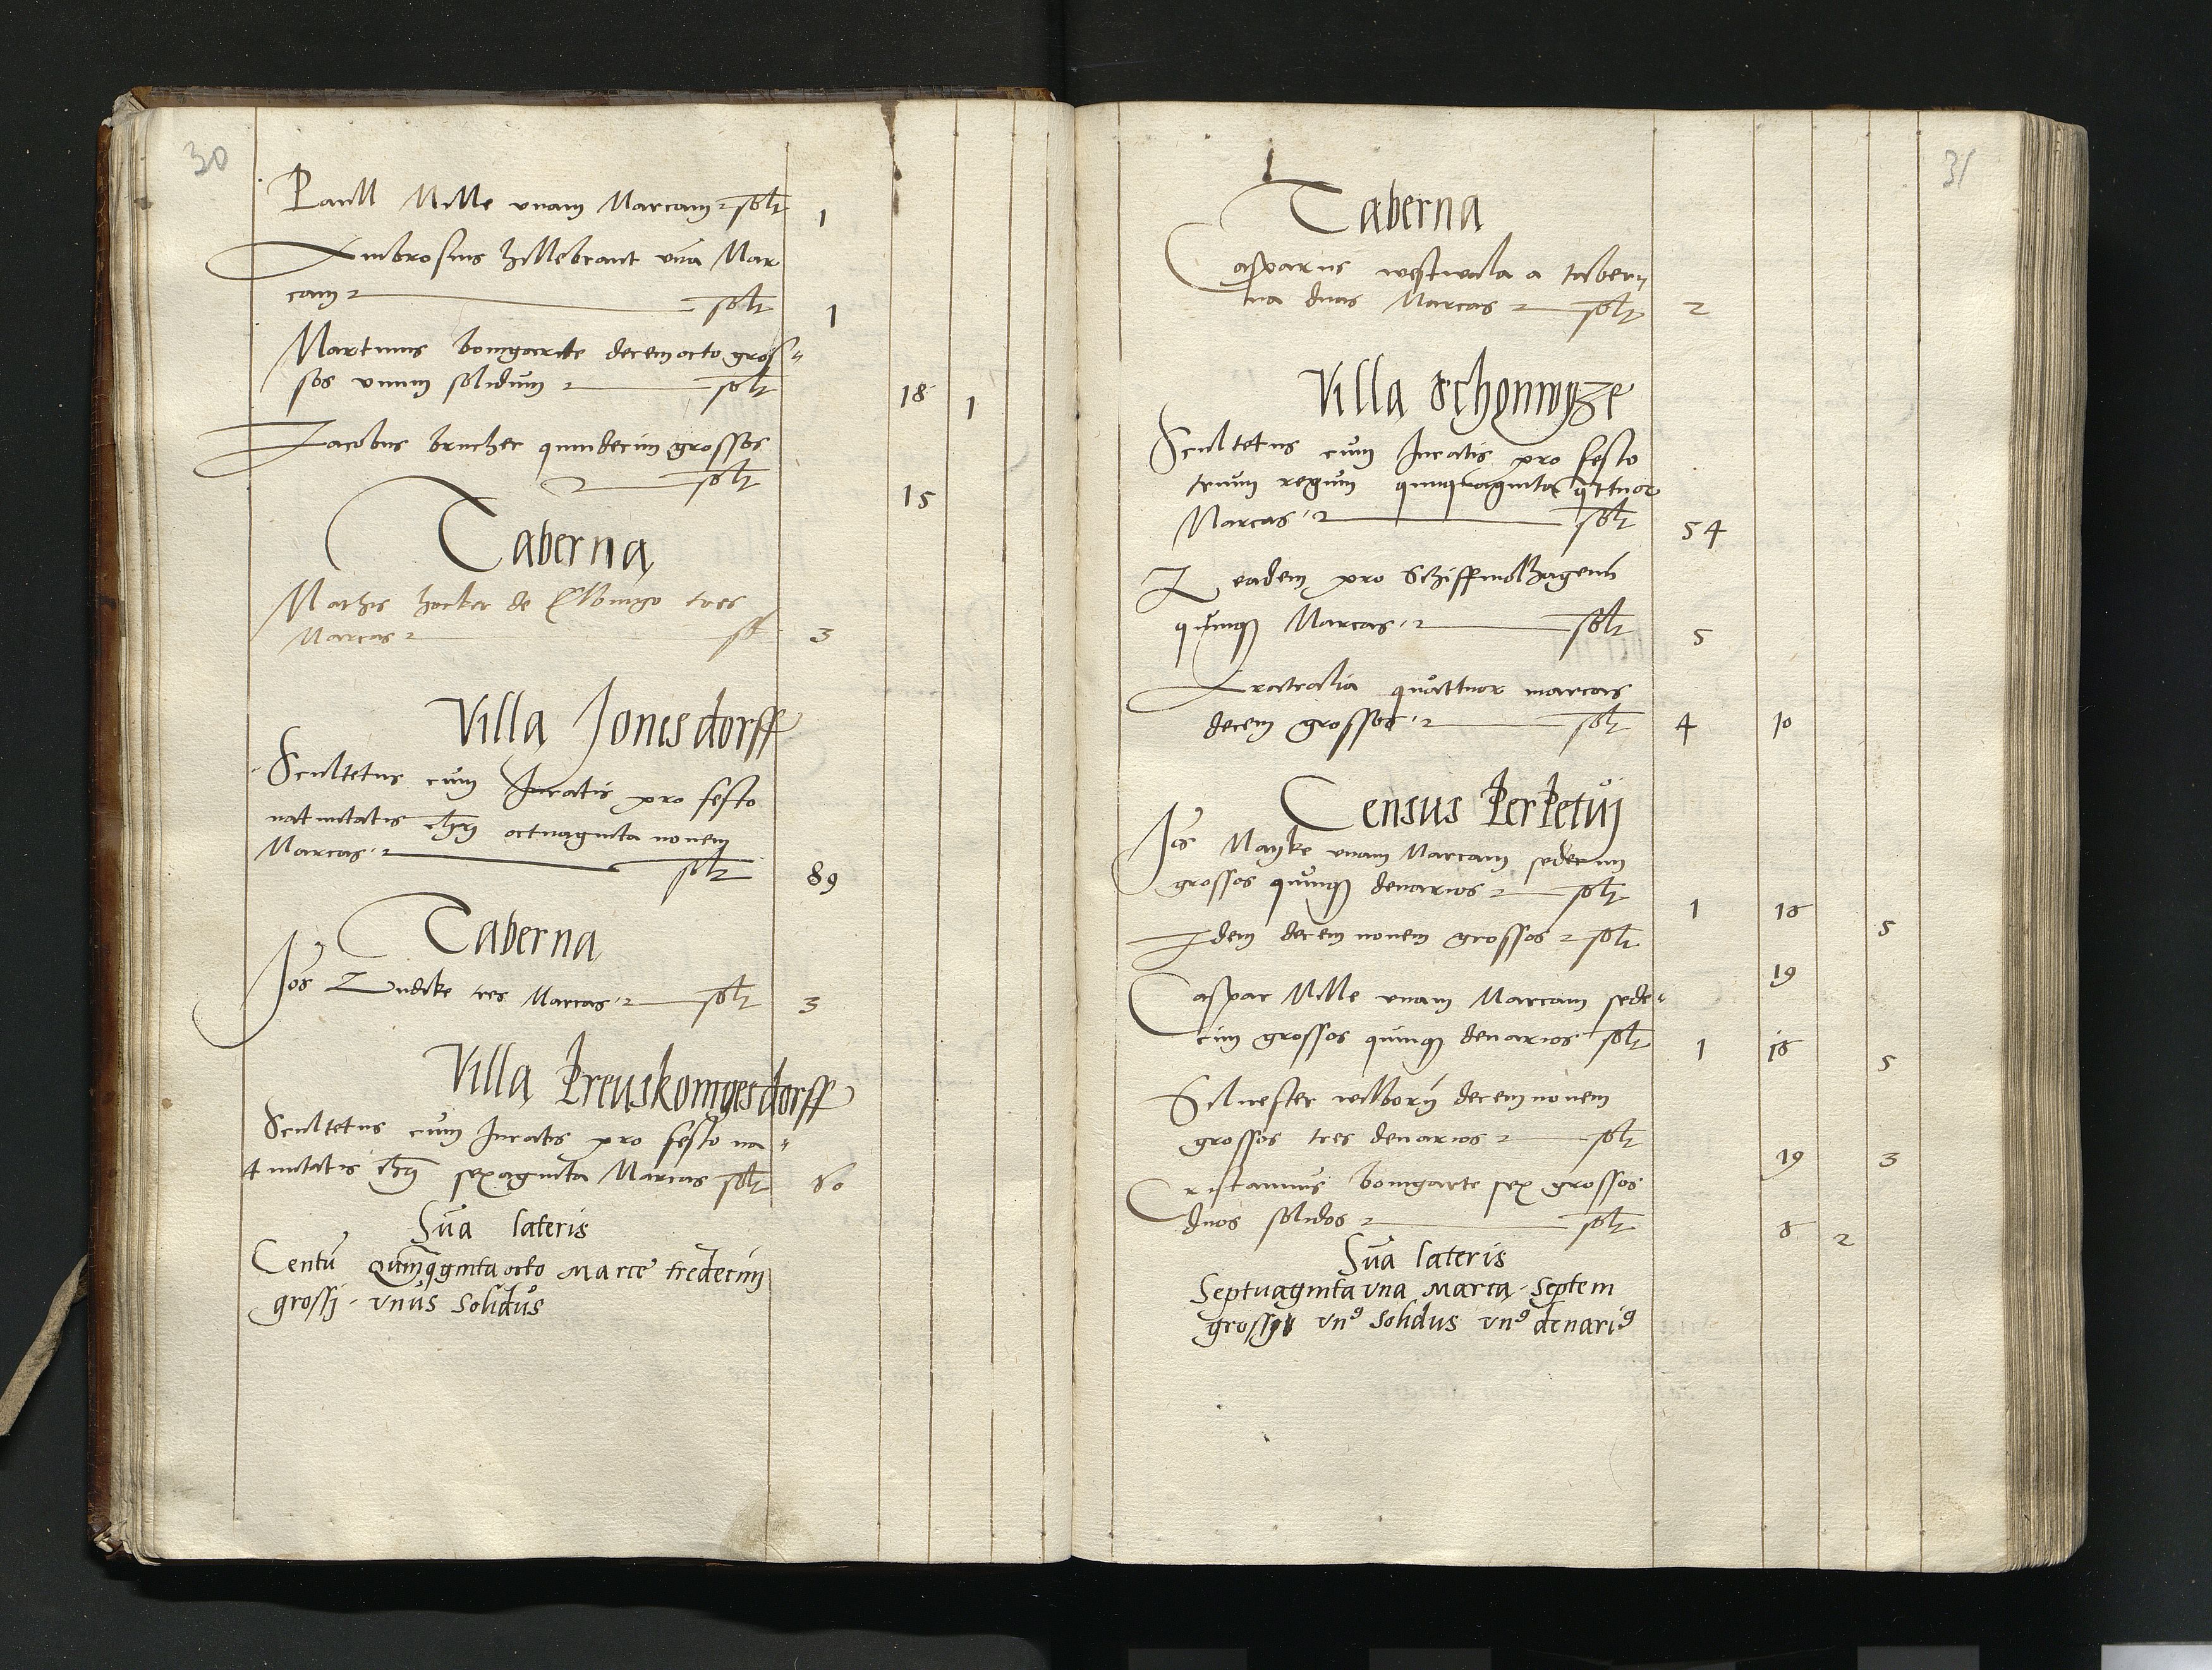 30
Paull Mille vnam Marcam solt 1
Ambrosius hillebrant vna Mar
cam solt 1
Martinus bomgarte decem octo gros"
sos vnum solidum solt 18 1
Jacobus brucher quindecim grossos
solt 15
Taberna
Mathis hocker de Elbingo tres
Marcas sol 3
Villa Jonisdorff
Scultetus cum Juratis pro festo
natiuitatis octuaginta nouem
Marcas solt 89
Taberna
Jos Ludike tres Marcas solt 3
Villa Preuskonigesdorff
Scultetus cum Juratis pro festo na"
tiuitatis sexaginta Marcas solt 60
Sua lateris
Centu quinqginta octo Marce tredecim
grossi vnus solidus
31
Taberna
Casparus westwala a tabern
na duas Marcas solt 2
Villa Schonwyze
Scultetus cum Juratis pro festo
trium regum quinquaginta quttuor
Marcas solt 54
eadem pro Schiffmolhagenn
quinq Marcas solt 5
Aratralia quattuor marcas
decem grossos solt 4 10
Census Perpetuj
Jos Manke vnam Marcam sedecim
grossos quinq denarios solt 1 16 5
Idem decem nouem grossos solt 19
Caspar Mille vnam Marcam sede"
cim grossos quinq denarios solt 1 16 5
Siluester wilborn decem nouem
grossos tres denarios solt 19 3
Cristannus bomgarte sex grossos
duos solidos solt 6 2
Sua lateris
Septuaginta vna Marca septem
grossi vn9 solidus vn9 denari9